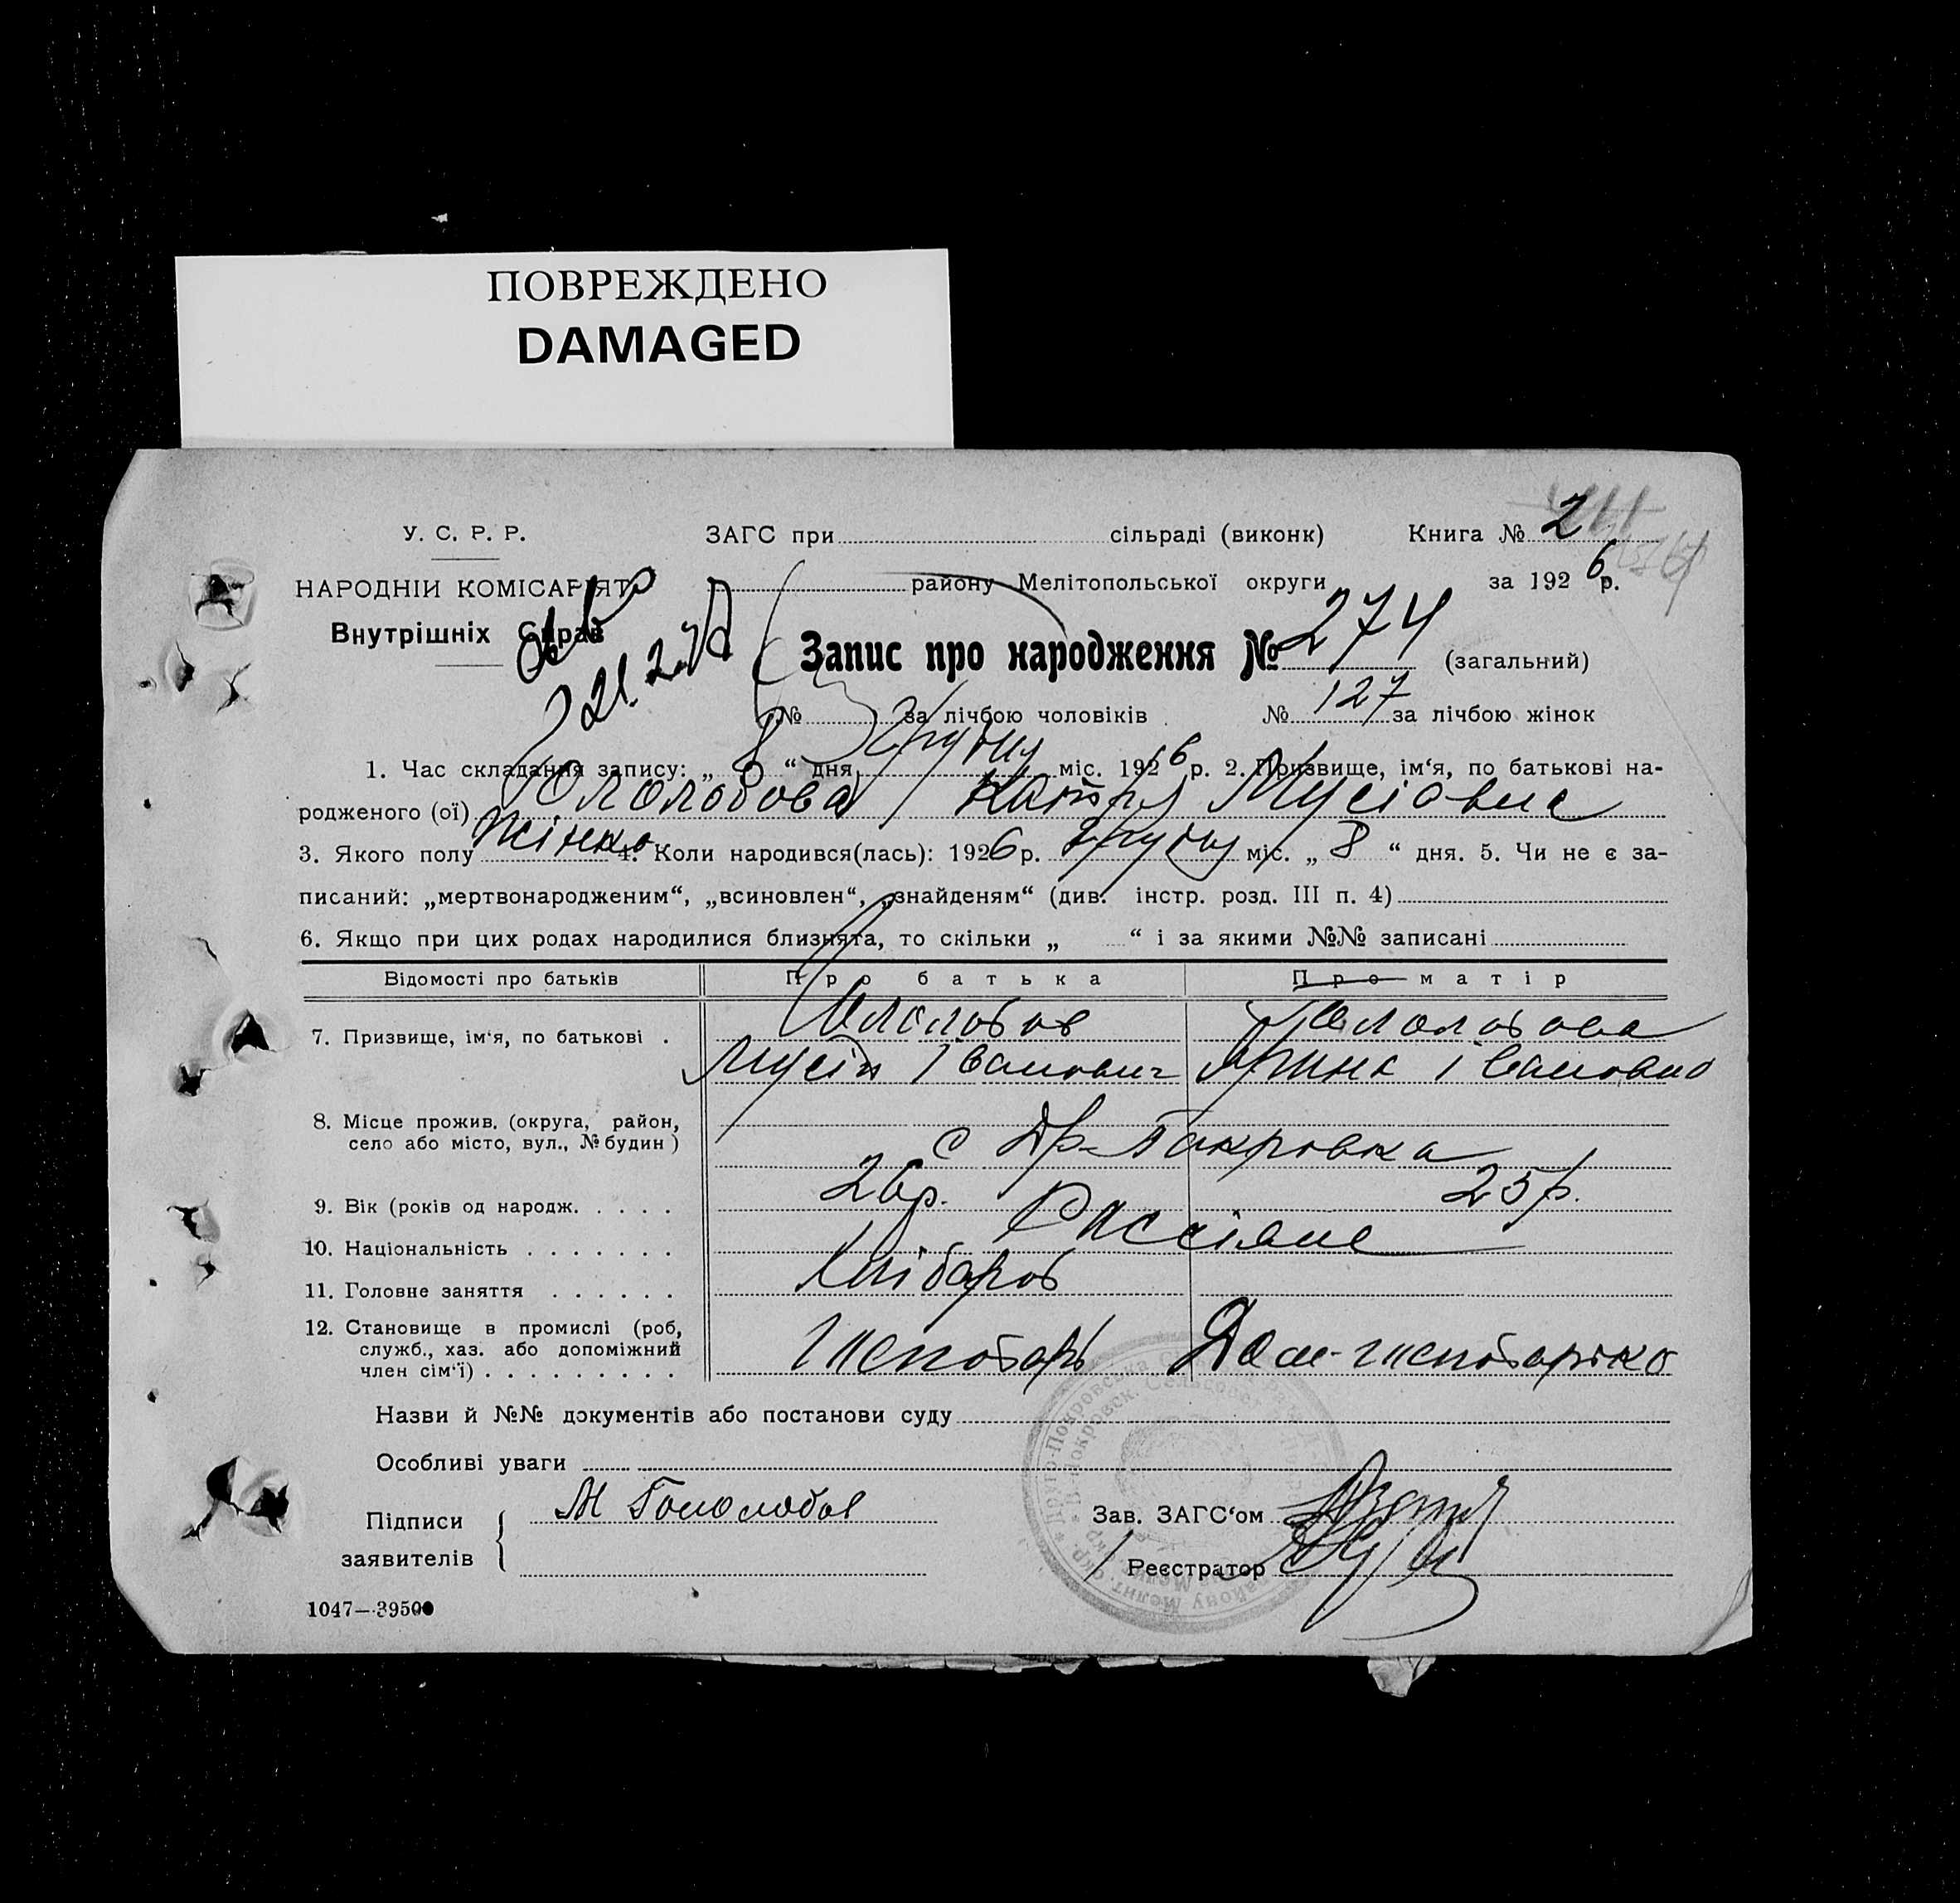 ПОВРЕЖДЕНО
DAMAGED
У. С. Р. Р. ЗАГС при сільраді (виконк) Книга № 2
НАРОДНІЙ КОМІСАРІЯТ району Мелітопольської округи за 1926 р.
Внутрішніх Справ
21.2.
Запис про народження № 274 (загальний)
№ за лічбою чоловіків № 127 за лічбою жінок
1. Час складання запису: „ 8 “ дня Грудня міс. 1926 р. 2. Призвище, ім‘я, по батькові на-
родженого (ої) Гололобова Катря Мусіовна
3. Якого полу жінко 4. Коли народився(лась): 1926 р. Грудня міс. „ 8 “ дня. 5. Чи не є за-
писаний: „мертвонародженим“, „всиновлен“, „знайденям“ (див. інстр. розд. III п. 4)
6. Якщо при цих родах народилися близнята, то скільки „ “ і за якими №№ записані
Відомості про батьків Про батька Про матір
7. Призвище, ім‘я, по батькові . Гололобов Гололобова
Мусій Іванович Івановно
8. Місце прожив. (округа, район,
село або місто, вул., № будин) с Др-Покровка
9. Вік (років од народж. . . . . 26р. 25р.
10. Національність . . . . . . . Россіяне
11. Головне заняття . . . . . . Хлібороб
12. Становище в промислі (роб,
служб., хаз. або допоміжний
член сім‘ї) . . . . . . . . . Шепотарь Дом-шепотарько
Назви й №№ документів або постанови суду
Особливі уваги
Підписи М Гололобов Зав. ЗАГС‘ом
заявителів Реєстратор
1047—39500